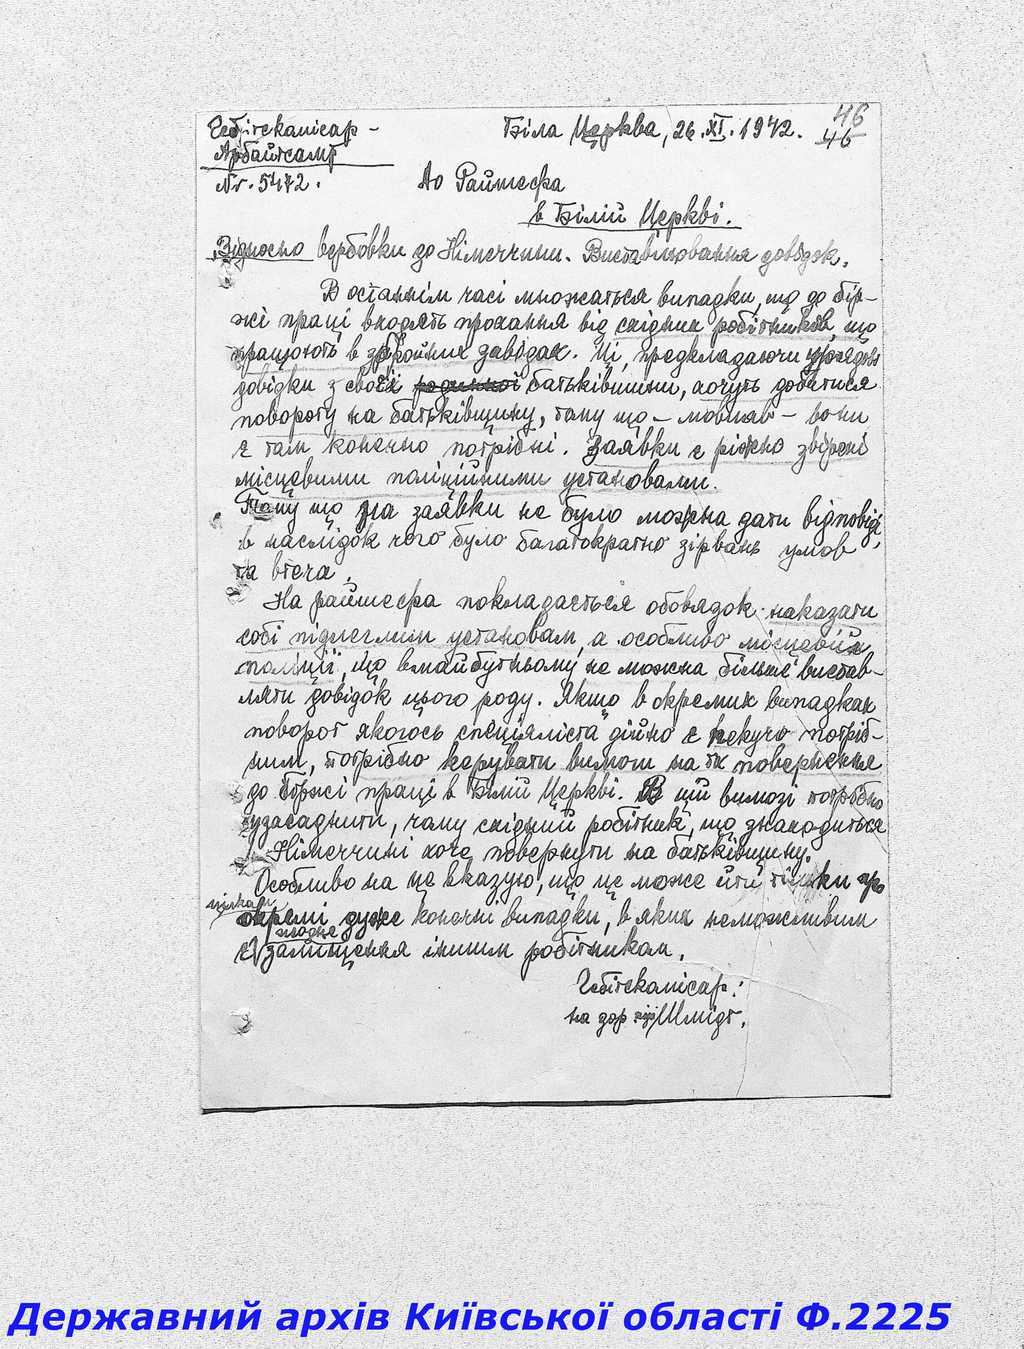 Гебітскамісар -
Арбайтсамт
Nr. 5472.
Біла Церква, 26.XI.1942.
46
46
До Райшефа
в Білій Церкві.
Відносно вербовки до Німеччини. Виставлювання довідок.
В останнім часі множаться випадки, що до бір-
жі праці входять прохання від східних робітників, що
працюють в збройних заводах. Ці, предкладаючи урядові
довідки з своєї батьківщини, хочуть добитися
повороту на батьківщину, тому що - мовляв - вони
є там конечно потрібні. Заявки є ріжно звірені
місцевими поліційними установами.
Тому що на заявки не було можна дати відповіді,
в наслідок чого було багатократно зірвань умов
та втеча.
На райшефа покладається обовязок наказати
собі підлеглим установам, а особливо місцевій
поліції, що в майбутньому не можна більше вистав-
ляти довідок цього роду. Якщо в окремих випадках
поворот якогось спеціяліста дійно є пекучо потріб-
ним, потрібно керувати вимоги на їх повернення
до Біржі праці в Білій Церкві. В цій вимозі потрібно
узасаднити, чому східний робітник, що знаходиться
в Німеччині хоче повернути на батьківщину.
Особливо на це вказую, що це може йти тільки про
цілком
окремі дуже конечні випадки, в яких неможливим
є заміщення іншим робітником.
Гебітскамісар:
на дор Шмідт.
Державний архів Київської області Ф.2225